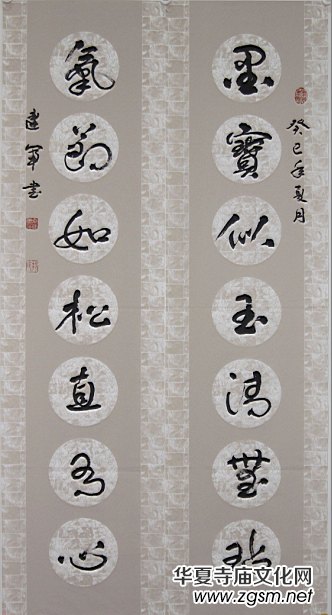 癸巳年夏月
墨寶似玉清無
氣節如松直心
建軍書
华夏寺庙文化网
www.zgsm.net